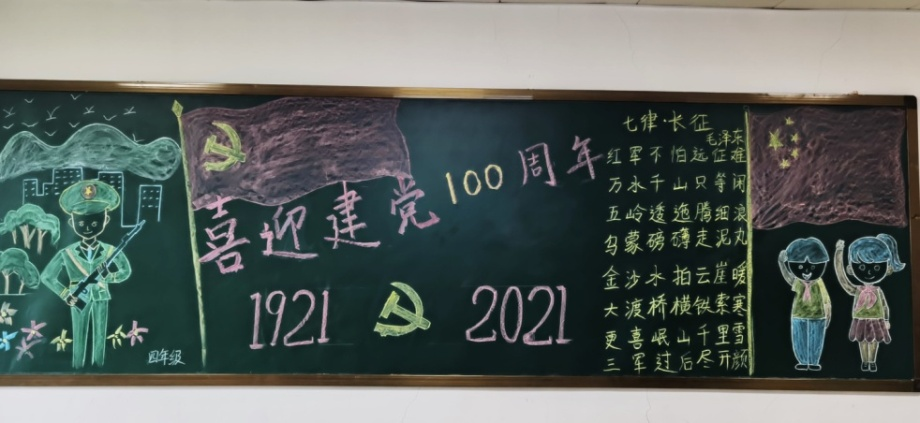 喜迎建党100周年
1921 2021
四年级
七律·长征
毛泽东
红军不怕远征难
万水千山只等闲
五岭逶迤腾细浪
乌蒙磅礴走泥丸
金沙水拍云崖暖
大渡桥横铁索寒
更喜岷山千里雪
三军过后尽开颜